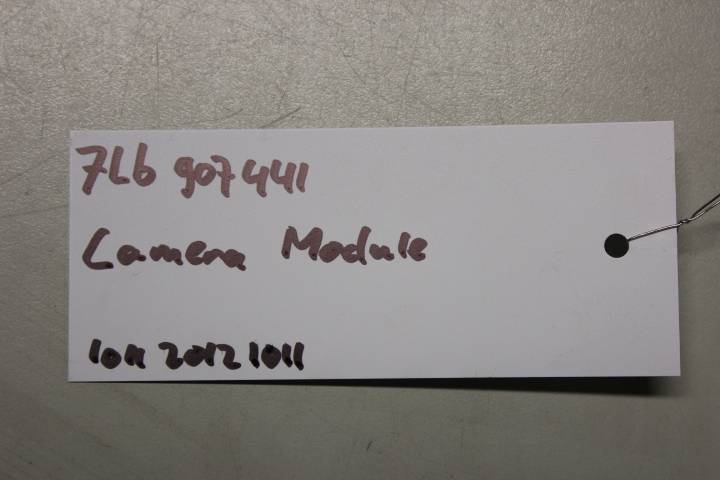 7L6 907 441
Camera Module
1011 2012 1011